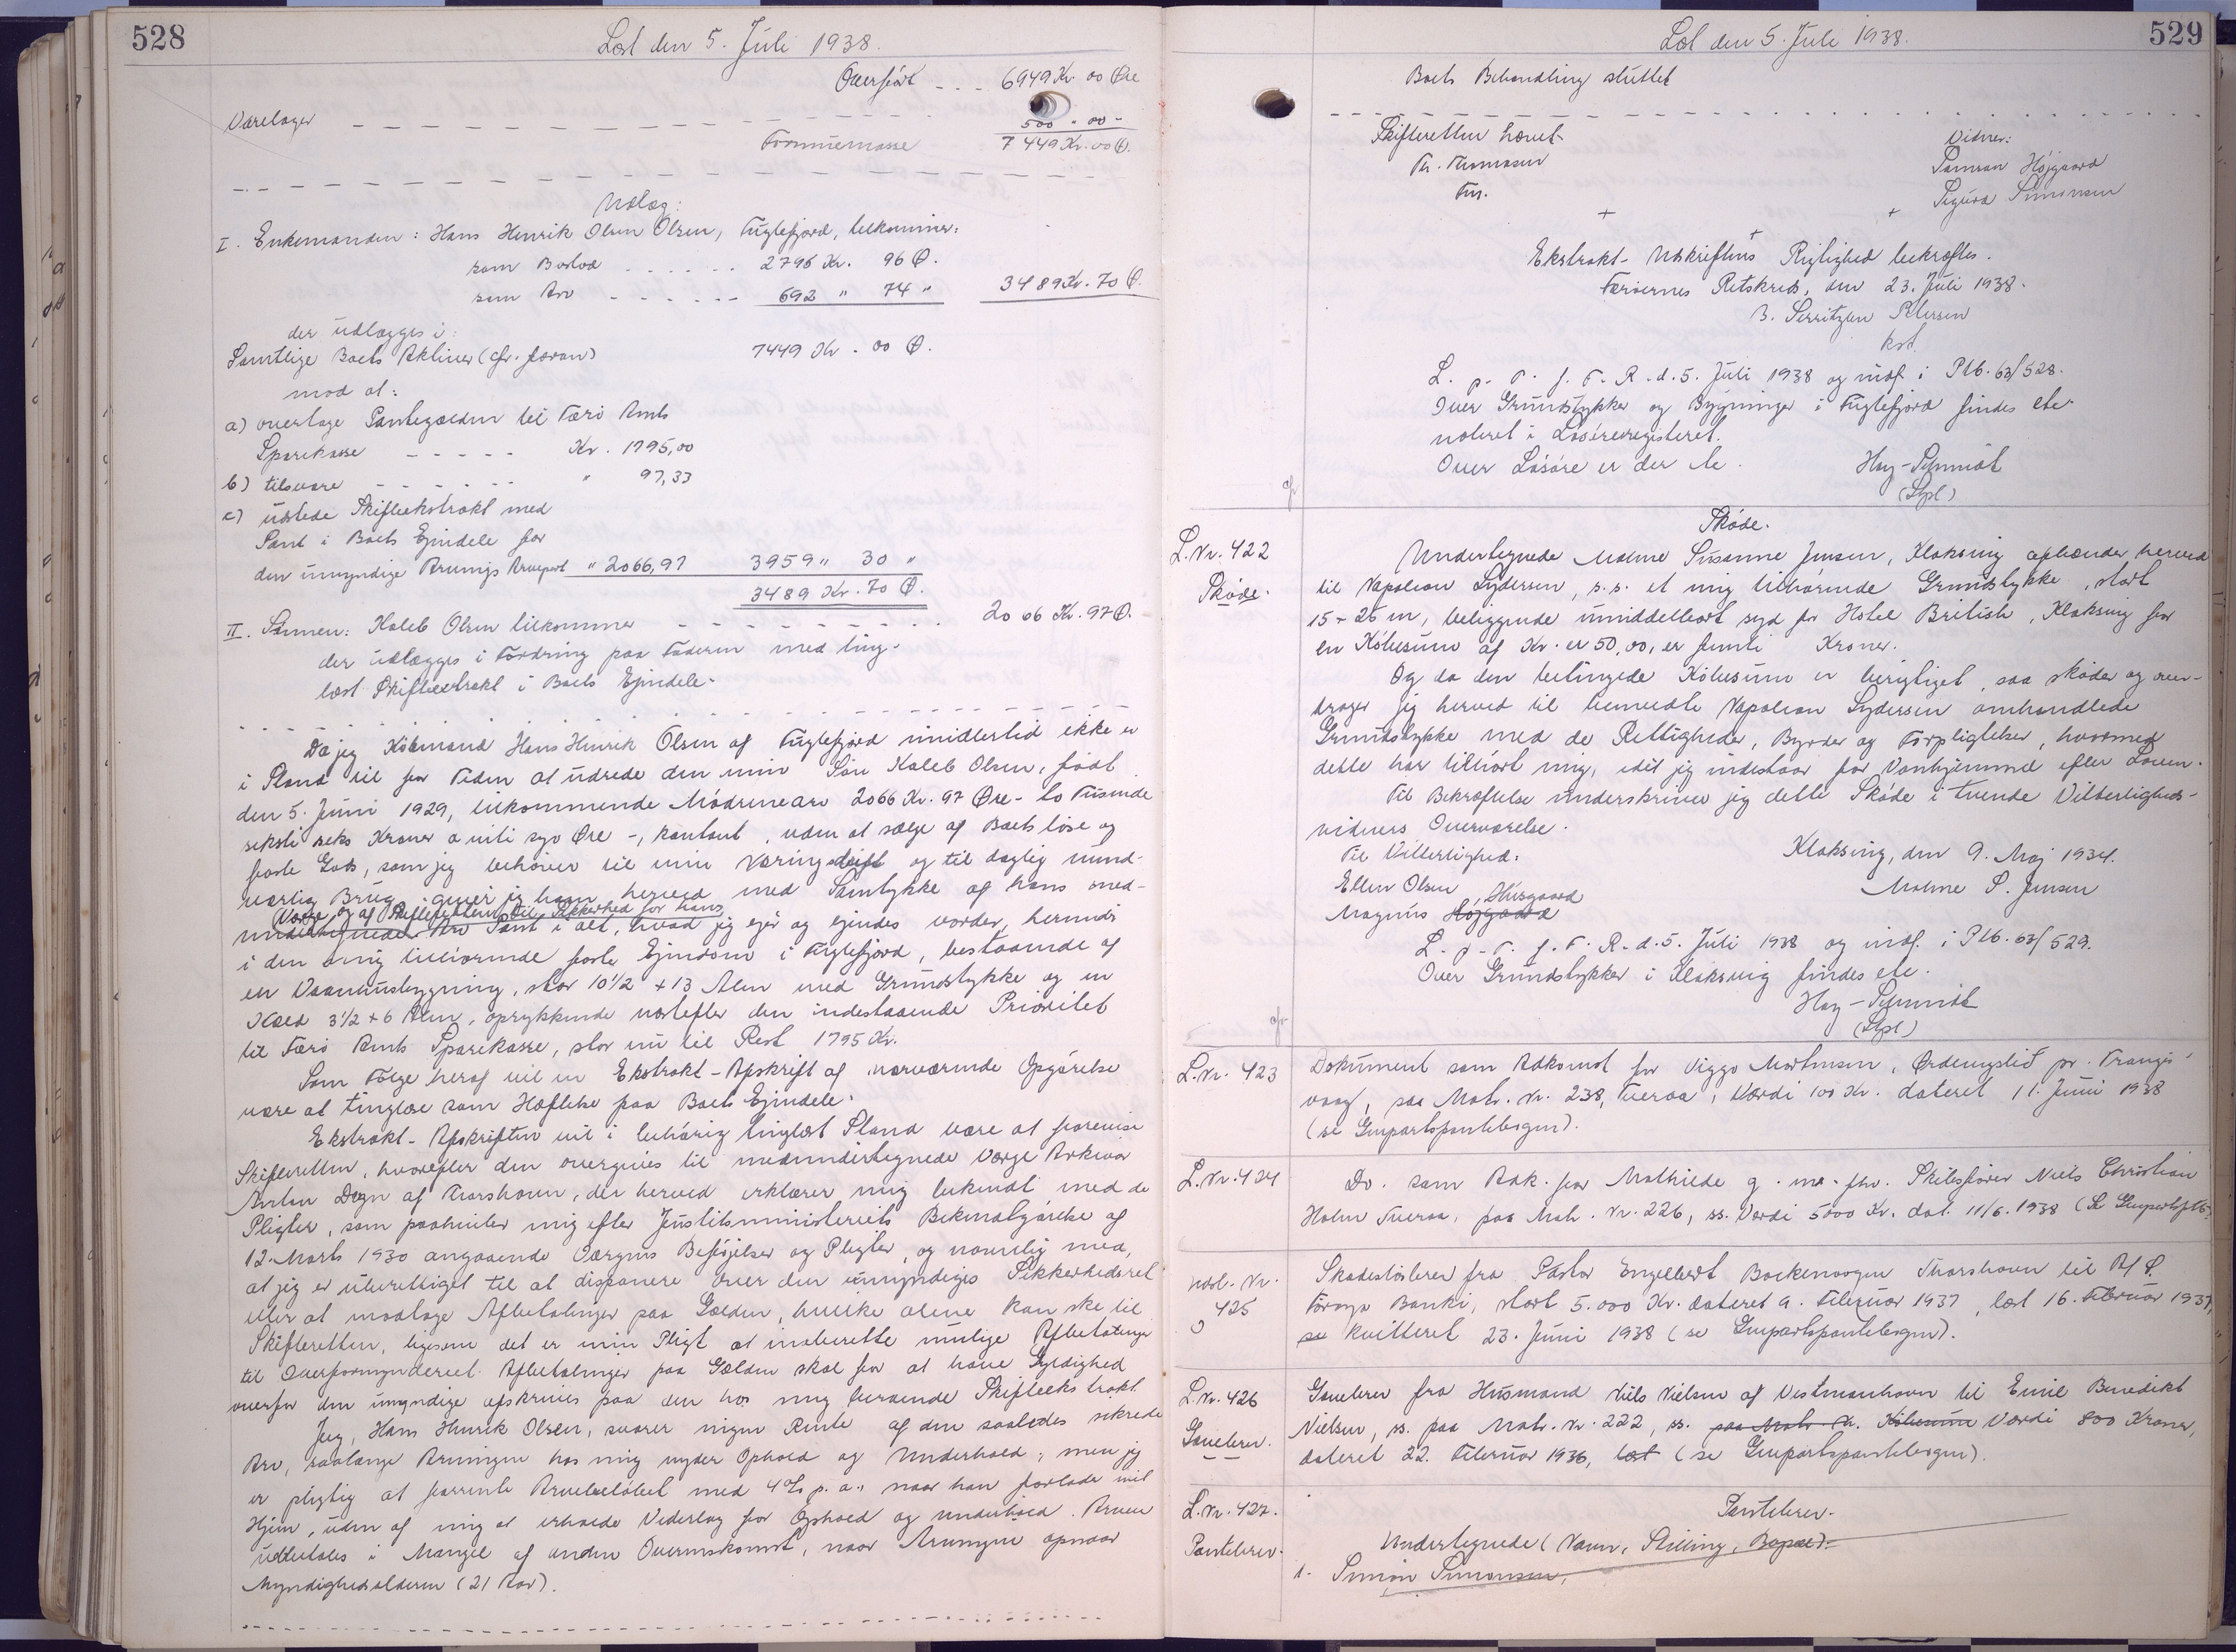 528
Læst den 5. Juli 1938.
Overført - - - 6949 Kr. 00 Øre
Varelager - - - - - - - - - - 500 " 00 -
Formuemasse 7449 Kr. 00 Ø.
Udlæg:
I. Enkemanden: Hans Henrik Olsen Olsen, Fuglefjord, tilkommer:
som Boslod . . . . . . 2796 Kr. 96 Ø.
som Arv - - - - - - 692 " 74 " 3489 Kr. 70 Ø.
der udlægges i:
Samtlige Boets Aktiver (cfr. foran) 7449 Kr. 00 Ø.
mod at:
a) overtage Pantegælden til Færø Amts
Sparekasse - - - - - Kr. 1795,00
b) tilsvare - - - - - - " 97,33
c) udstede Skifteekstrakt med
Pant i Boets Ejendele for
den umyndige Arvings Arvepart " 2066,97 3959 " 30 "
3489 Kr. 70 Ø.
II. Sønnen: Kaleb Olsen tilkommer - - - - - - - - - 2066 Kr. 97 Ø.
der udlægges i Fordring paa Faderen med ting-
læst Skifteekstrakt i Boets Ejendele.
Da jeg Købmand Hans Henrik Olsen af Fuglefjord imidlertid ikke er
i Stand til for Tiden at udrede den min Søn Kaleb Olsen, født
den 5. Juni 1929, tilkommende Mødrenearv 2066 Kr. 97 Øre - to Tusinde
seksti seks Kroner o niti syv Øre -, kontant, uden at sælge af Boets løse og
faste Gods, som jeg behøver til min Næringsdrift og til daglig nund-
værlig Brug, giver jeg ham herved med Samtykke af hans med-
Værge og af Skifteretten til Sikkerhed for hans
undertegnede Arv Pant i alt, hvad jeg ejer og ejendes vorder, herunder
i den mig tilhørende faste Ejendom i Fuglefjord, bestaaende af
en Vaaningsbygning, stor 10 1/2 + 13 Alen med Grundstykke og en
Kæld 3 1/2 + 6 Alen, oprykkende næstefter den indestaaende Prioritet
til Færø Amts Sparekasse, stor nu til Rest 1795 Kr.
Som Følge heraf vil en Ekstrakt-Afskrift af nærværende Opgørelse
være at tinglæse som Hæftelse paa Boets Ejendele.
Ekstrakt-Afskriften vil i behørig tinglæst Stand være at forevise
Skifteretten, hvorefter den overgives til medundertegnede Værge Arkivar
Anton Degn af Thorshavn, der herved erklærer mig bekendt med de
Pligter, som paahviler mig efter Justitsministeriets Bekendtgørelse af
12. Marts 1930 angaaende Værgens Beføjelser og Pligter, og navnlig med,
at jeg er uberettiget til at disponere over den umyndiges Sikkerhedsret
eller at modtage Afbetalinger paa Gælden, hvilke alene kan ske til
Skifteretten, ligesom det er min Pligt at indberette mulige Afbetalinger
til Overformynderiet. Afbetalinger paa Gælden skal for at have Gyldighed
overfor den umyndige afskrives paa den hos mig beroende Skifteekstrakt.
Jeg, Hans Henrik Olsen, svarer ingen Rente af den saaledes sikrede
Arv, saalænge Arvingen hos mig nyder Ophold og Underhold; men jeg
er pligtig at forrente Arvebeløbet med 4% p. a., naar han forlader mit
Hjem, uden af mig at erholde Vederlag for Ophold og underhold. Arven
udbetales i Mangel af anden Overenskomst, naar Arvingen opnaar
Myndighedsalderen (21 Aar).
529
Læst den 5. Juli 1938.
Boets Behandling sluttet
Skifteretten hævet.
Th. Thomasen
Fm.
Vidner:
Samson Højgaard
Sigurd Simonsen
Ekstrakt-Udskriftens Rigtighed bekræftes.
Færøernes Retskreds, den 23. Juli 1938.
B. Serritzlew Petersen
kst.
L. p. T. f. F. R. d. 5. Juli 1938 og indf. i Ptb. 63/528.
Over Grundstykker og Bygninger i Fuglefjord findes ete
noteret i Løsøreregisteret.
Over Løsøre er der ete.
Hay-Schmidt
(Stpl)
L. Nr. 422
Skøde.
Skøde.
Undertegnede Malene Susanne Jensen, Klaksvig afhænder herved
til Napoleon Lydersen, s. s. et mig tilhørende Grundstykke, stort
15 + 25 m, beliggende umiddelbart syd for Hotel British, Klaksvig for
en Købesum af Kr. er 50,00, er femti Kroner.
Og da den betingede Købesum er berigtiget, saa skøder og over-
drager jeg herved til bemeldte Napoleon Lydersen omhandlede
Grundstykke med de Rettigheder, Byrder og Forpligtelser, hvormed
dette har tilhørt mig, idet jeg indestaar for Vanhjemmel efter Loven.
Til Bekræftelse underskriver jeg dette Skøde i tvende Vitterligheds-
vidners Overværelse.
Til Vitterlighed:
Ellen Olsen
Magnus Højgaard, Husgaard
Klaksvig, den 9. Maj 1934.
Malene S. Jensen
L. p. T. f. F. R. d. 5. Juli 1938 og indf. i Ptb. 63/529.
Over Grundstykker i Klaksvig findes ete.
Hay-Schmidt
(Stpl)
L. Nr. 423
Dokument som Adkomst for Viggo Mortensen, Ørdevigslid pr. Trangis-
vaag, paa Matr. Nr. 238, Tveraa, Værdi 100 Kr. dateret 11. Juni 1938
(se Genpartspantebogen).
L. Nr. 424
Do. som Adk. for Mathilde g. m. fhv. Skibsfører Niels Christian
Holm Tveraa, paa Matr. Nr. 226, ss. Værdi 5000 Kr. dat. 11/6. 1938 (Se Genpartsptb.
Nr.
425
Skadesløsbrev fra Pastor Engelbert Bockenoogen Thorshavn til A/S.
Føroya Banki, stort 5.000 Kr. dateret 9. Februar 1937, læst 16. Februar 1937,
se kvitteret 23. Juni 1938 (se Genpartspantebogen).
L. Nr. 426
Gavebrev.
Gavebrev fra Husmand Niels Nielsen af Vestmanhavn til Emil Benedikt
Nielsen, ss. paa Matr. Nr. 222, ss. paa Matr. Nr. Købesum Værdi 800 Kroner,
dateret 22. Februar 1936, læst (se Genpartspantebogen).
L. Nr. 427.
Pantebrev.
Pantebrev.
Undertegnede (Navn, Stilling, Bopæl).
1. Simion Simonsen,